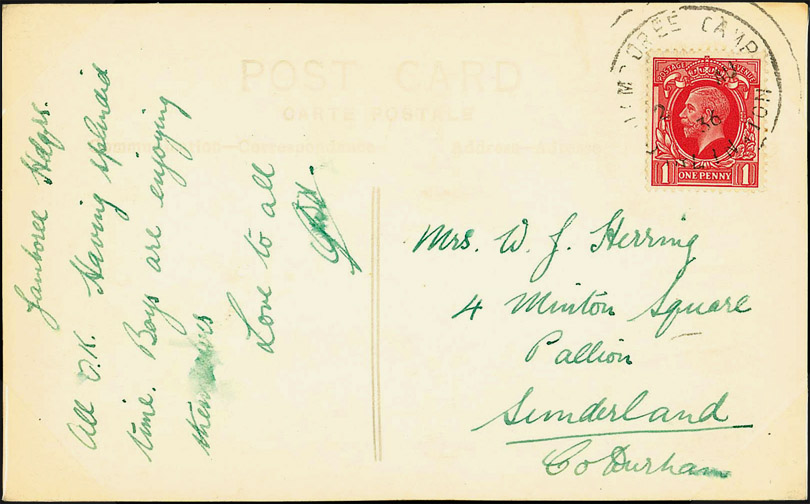 POST CARD
CARTE POSTALE
Communication—Correspondence
Address—Adresse
Jamboree Hdqrs.
All O.K. Having splendid
time. Boys are enjoying
themselves
Love to all
JAMBOREE CAMP
36
POSTAGE REVENUE
1 ONE PENNY 1
Mrs. W. J. Herring
4 Minton Square
Pallion
Sunderland
Co Durham